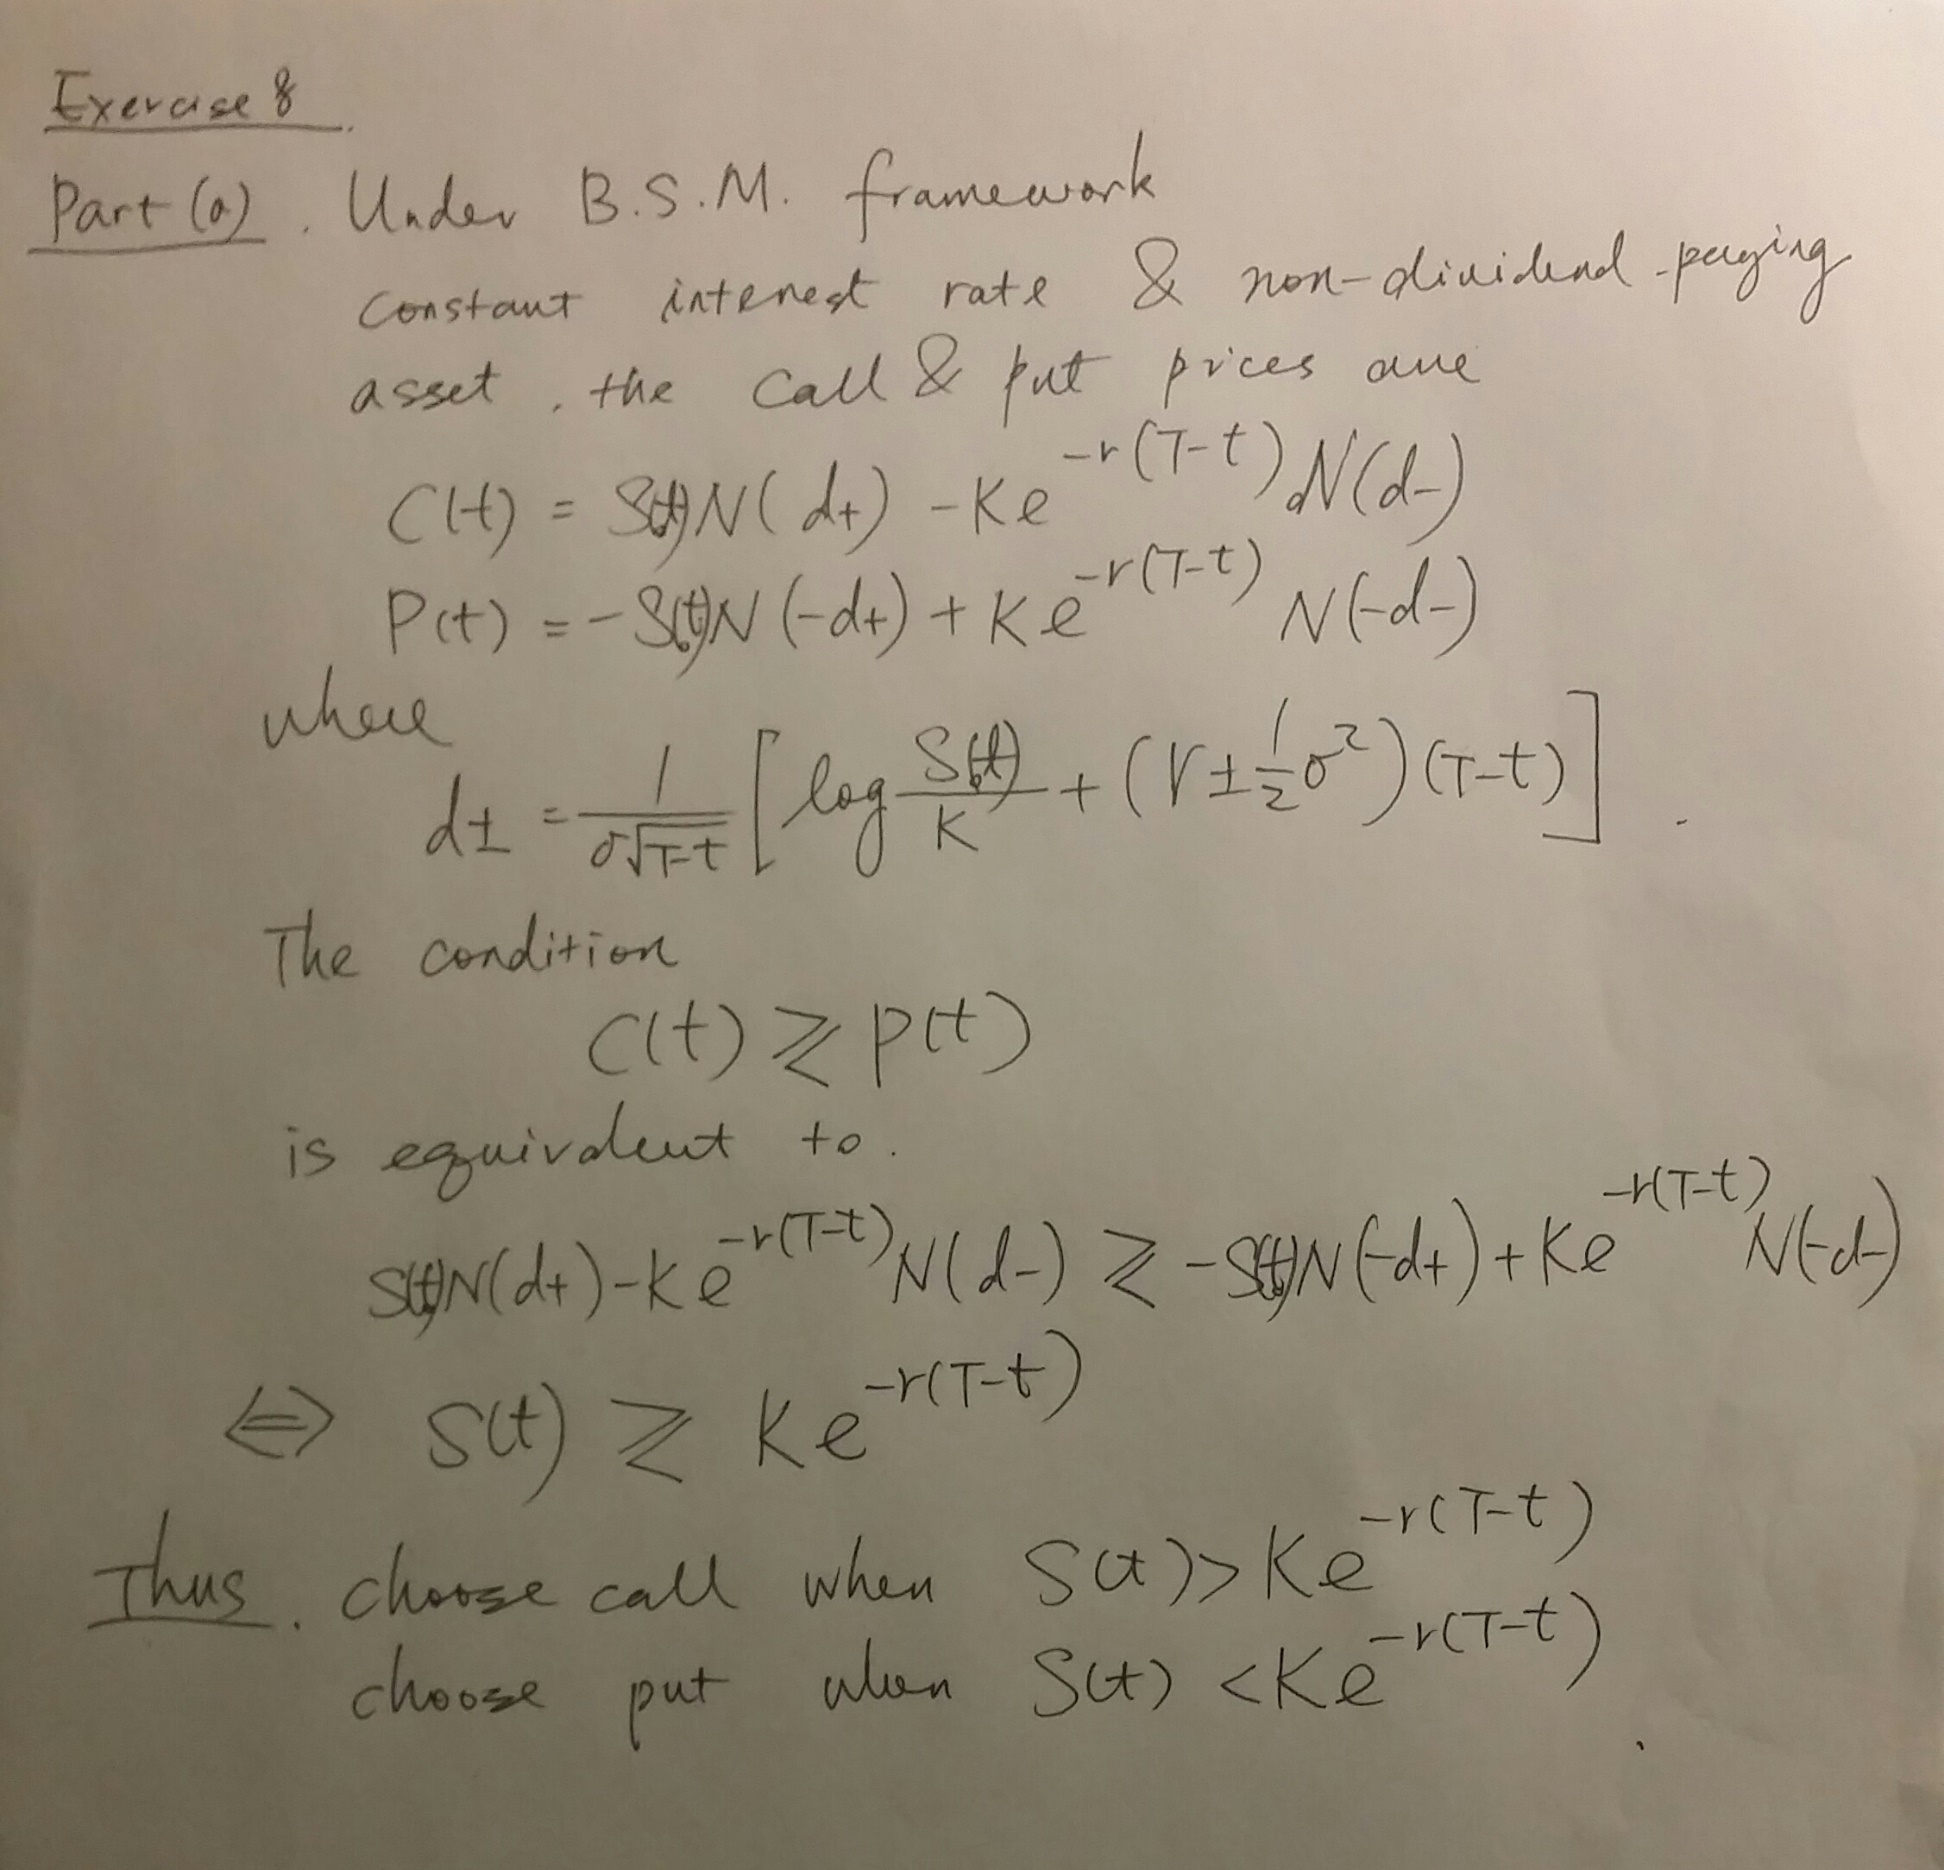 Exercise 8.
Part (a). Under B.S.M. framework
constant interest rate & non-dividend-paying
asset, the call & put prices are
C(t) = S(t)N(d+) - Ke^{-r(T-t)} N(d-)
P(t) = -S(t)N(-d+) + Ke^{-r(T-t)} N(-d-)
where
d± = 1/(σ√(T-t)) [log S(t)/K + (r ± 1/2 σ²)(T-t)].
The condition
C(t) ⩾ P(t)
is equivalent to.
S(t)N(d+) - Ke^{-r(T-t)} N(d-) ⩾ -S(t)N(-d+) + Ke^{-r(T-t)} N(-d-)
⇔ S(t) ⩾ Ke^{-r(T-t)}
Thus, choose call when S(t) > Ke^{-r(T-t)}
choose put when S(t) < Ke^{-r(T-t)}.